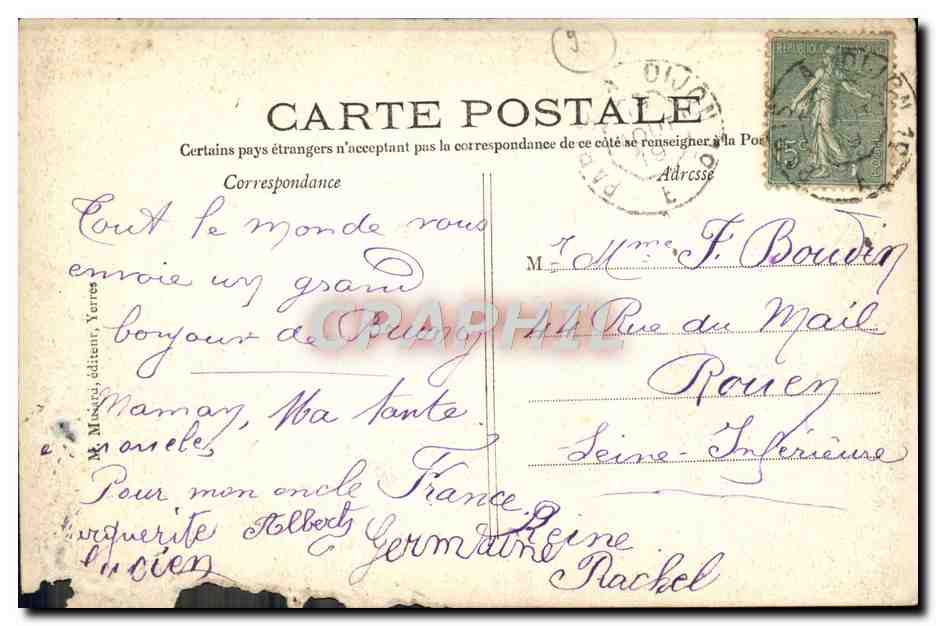 CARTE POSTALE
Certains pays étrangers n'acceptant pas la correspondance de ce côté se renseigner à la Pos
Correspondance
Adresse
REPUBLIQUE
15c
DIJON
DIJON
E
Tout le monde vous
envoie un grand
bonjour de Brunoy
Maman, Ma tante
mon oncle,
Pour mon oncle France.
Albert
Germaine Reine
Lucien
Rachel
Mr Mme F. Boudin
44 Rue du Mail
Rouen
Seine-Inférieure
M. Mujard, éditeur, Yerres
CPAPHIL